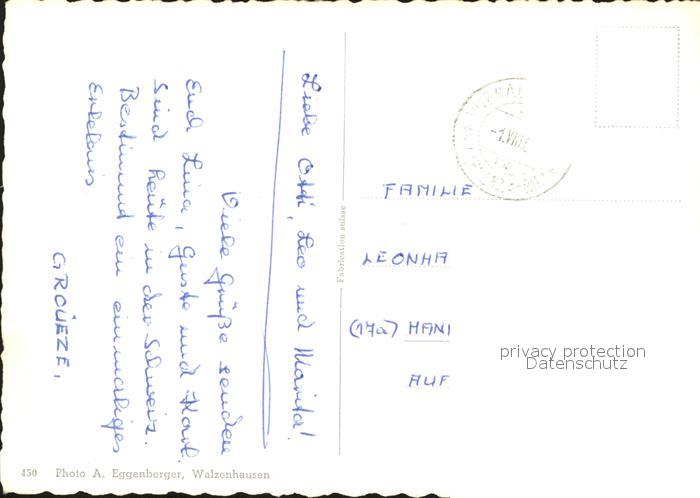 Liebe Otti, Leo und Marita!
Viele Grüße senden
Euch Lina, Guste und Karl.
Sind heute in der Schweiz.
Bestimmt ein einmaliges
Erlebnis
GRÜEZE,
Fabrication suisse
FAMILIE
LEONHA
(17a) MANI
AUF
privacy protection
Datenschutz
450 Photo A. Eggenberger, Walzenhausen